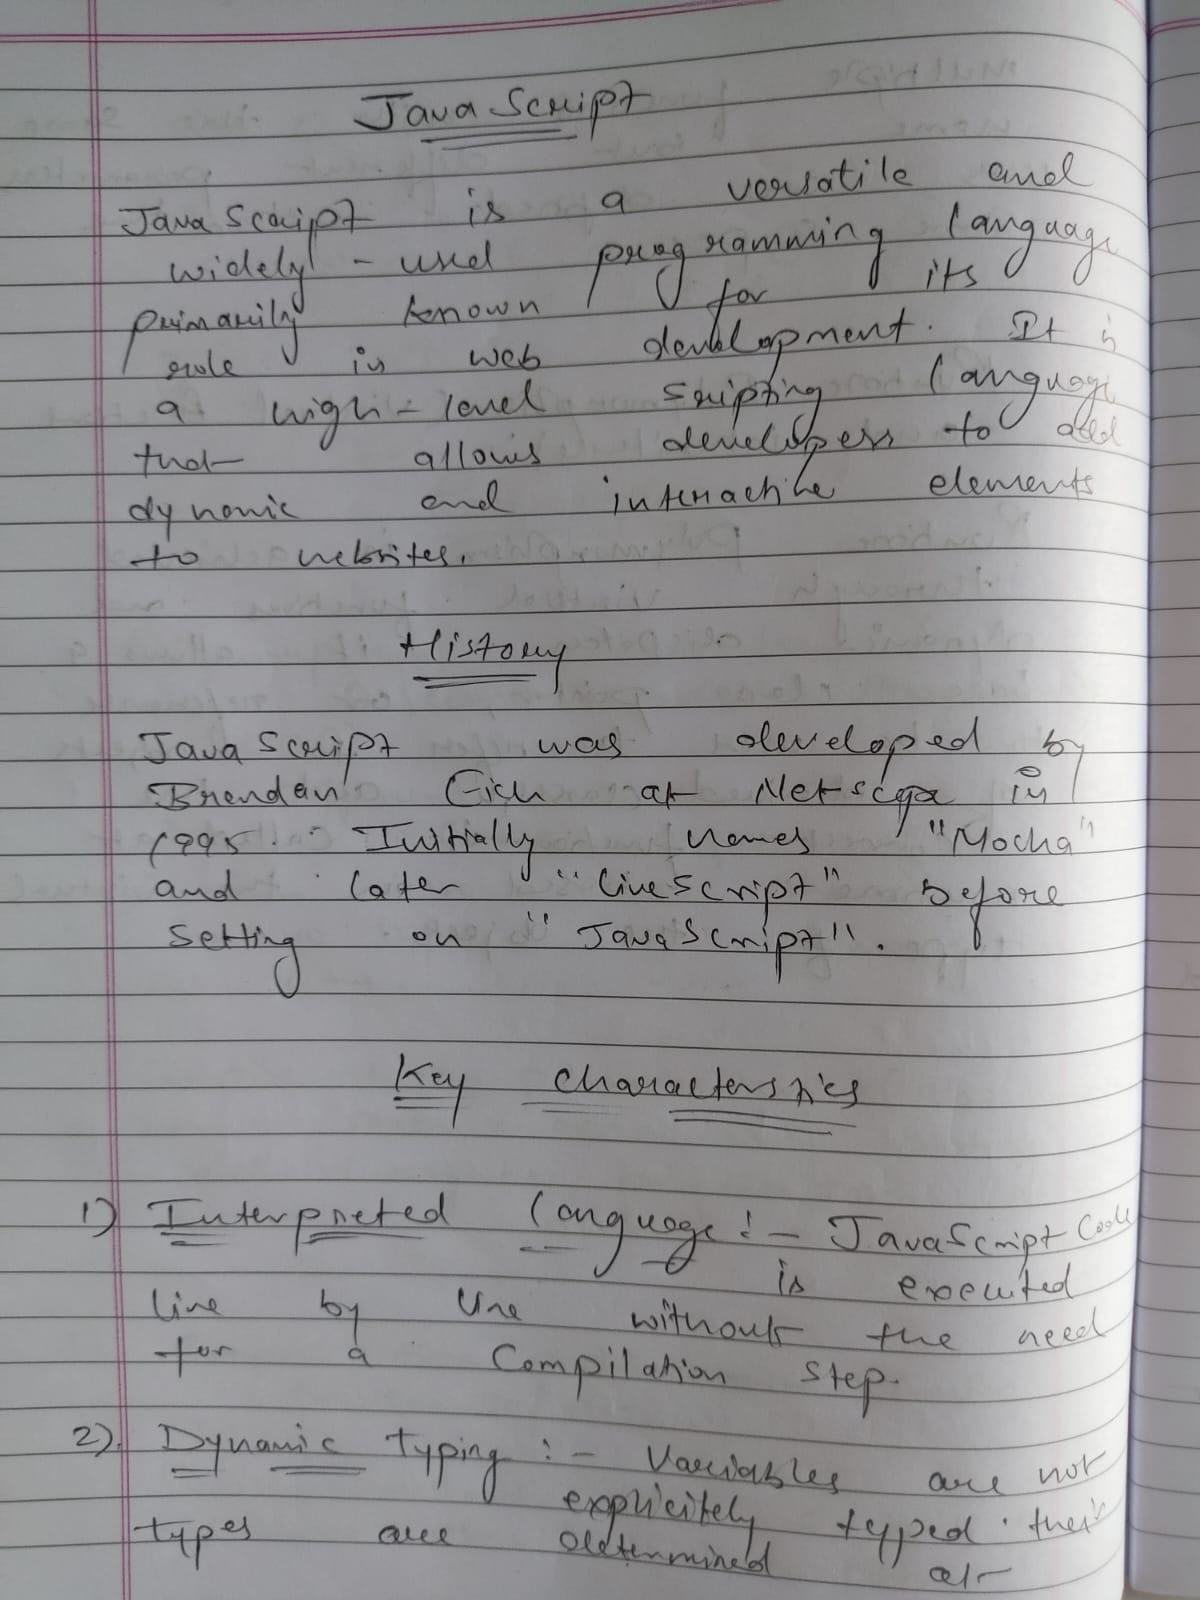 JavaScript
JavaScript is a versatile and
widely-used programming language
primarily known for its
role in web development. It is
a high-level scripting language
that allows developers to add
dynamic and interactive elements
to websites.
History
JavaScript was developed by
Brendan Eich at Netscape in
1995. Initially names "Mocha"
and later "LiveScript" before
setting on "JavaScript".
Key Characterstics
1) Interpreted Language:- JavaScript Code
is executed
line by line without the need
for a Compilation step.
2) Dynamic typing:- Variables are not
explicitely typed. their
types are determined at